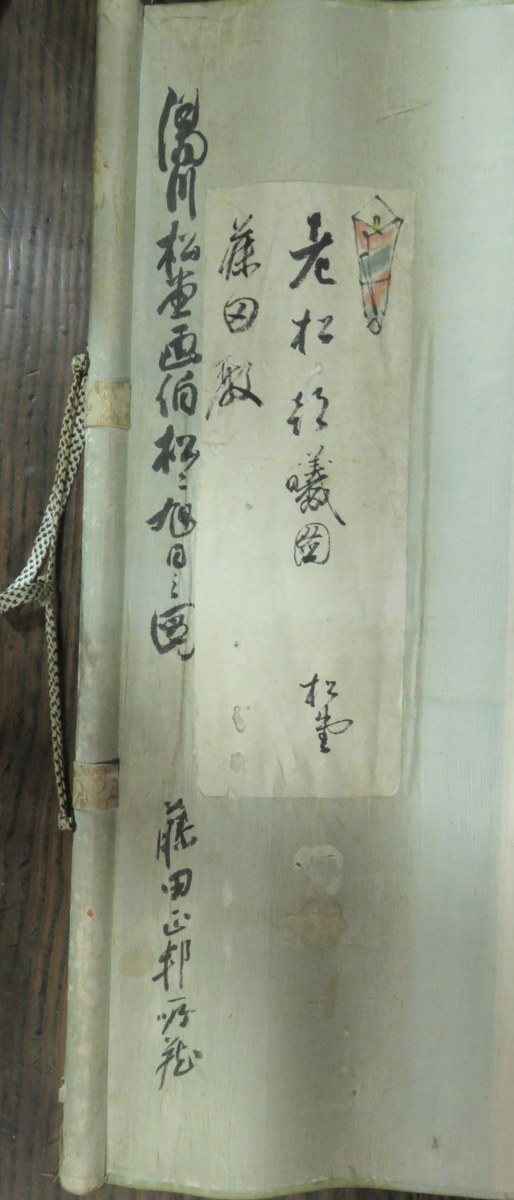 老松朝曦圖
松堂
藤田殿
湯川松堂画伯松ニ旭日之圖
藤田正邦所蔵